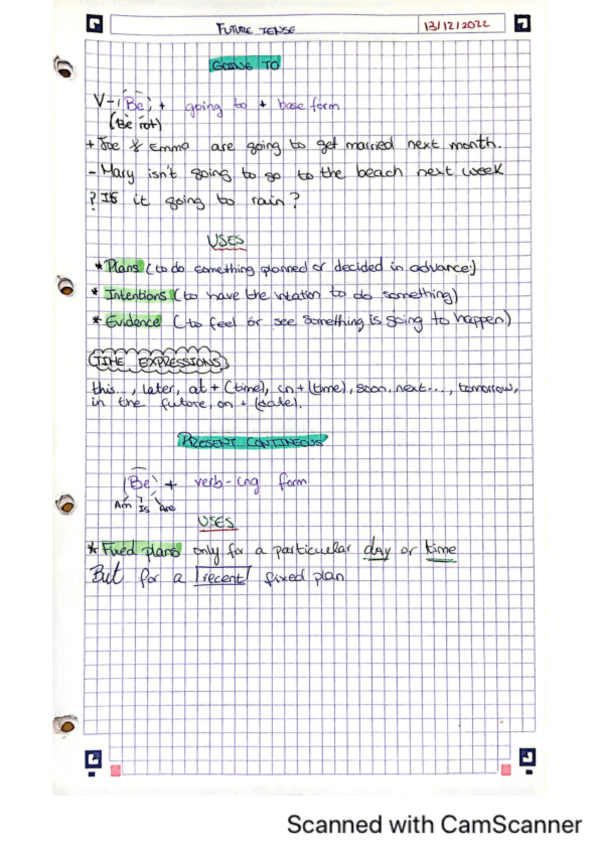 FUTURE TENSE
13/12/2022
GOING TO
V-1 Be + going to + base form
(Be not)
+ Joe & Emma are going to get married next month.
- Mary isn't going to go to the beach next week
? Is it going to rain?
USES
* Plans (to do something planned or decided in advance)
* Intentions (to have the intation to do something)
* Evidence (to feel or see something is going to happen)
TIME EXPRESSIONS
this..., later, at + (time), in + (time), soon, next..., tomorrow,
in the future, on + (date).
PRESENT CONTINEOUS
Be + verb-ing form
Am Is Are
USES
* Fixed plans only for a particular day or time
But for a recent fixed plan
Scanned with CamScanner